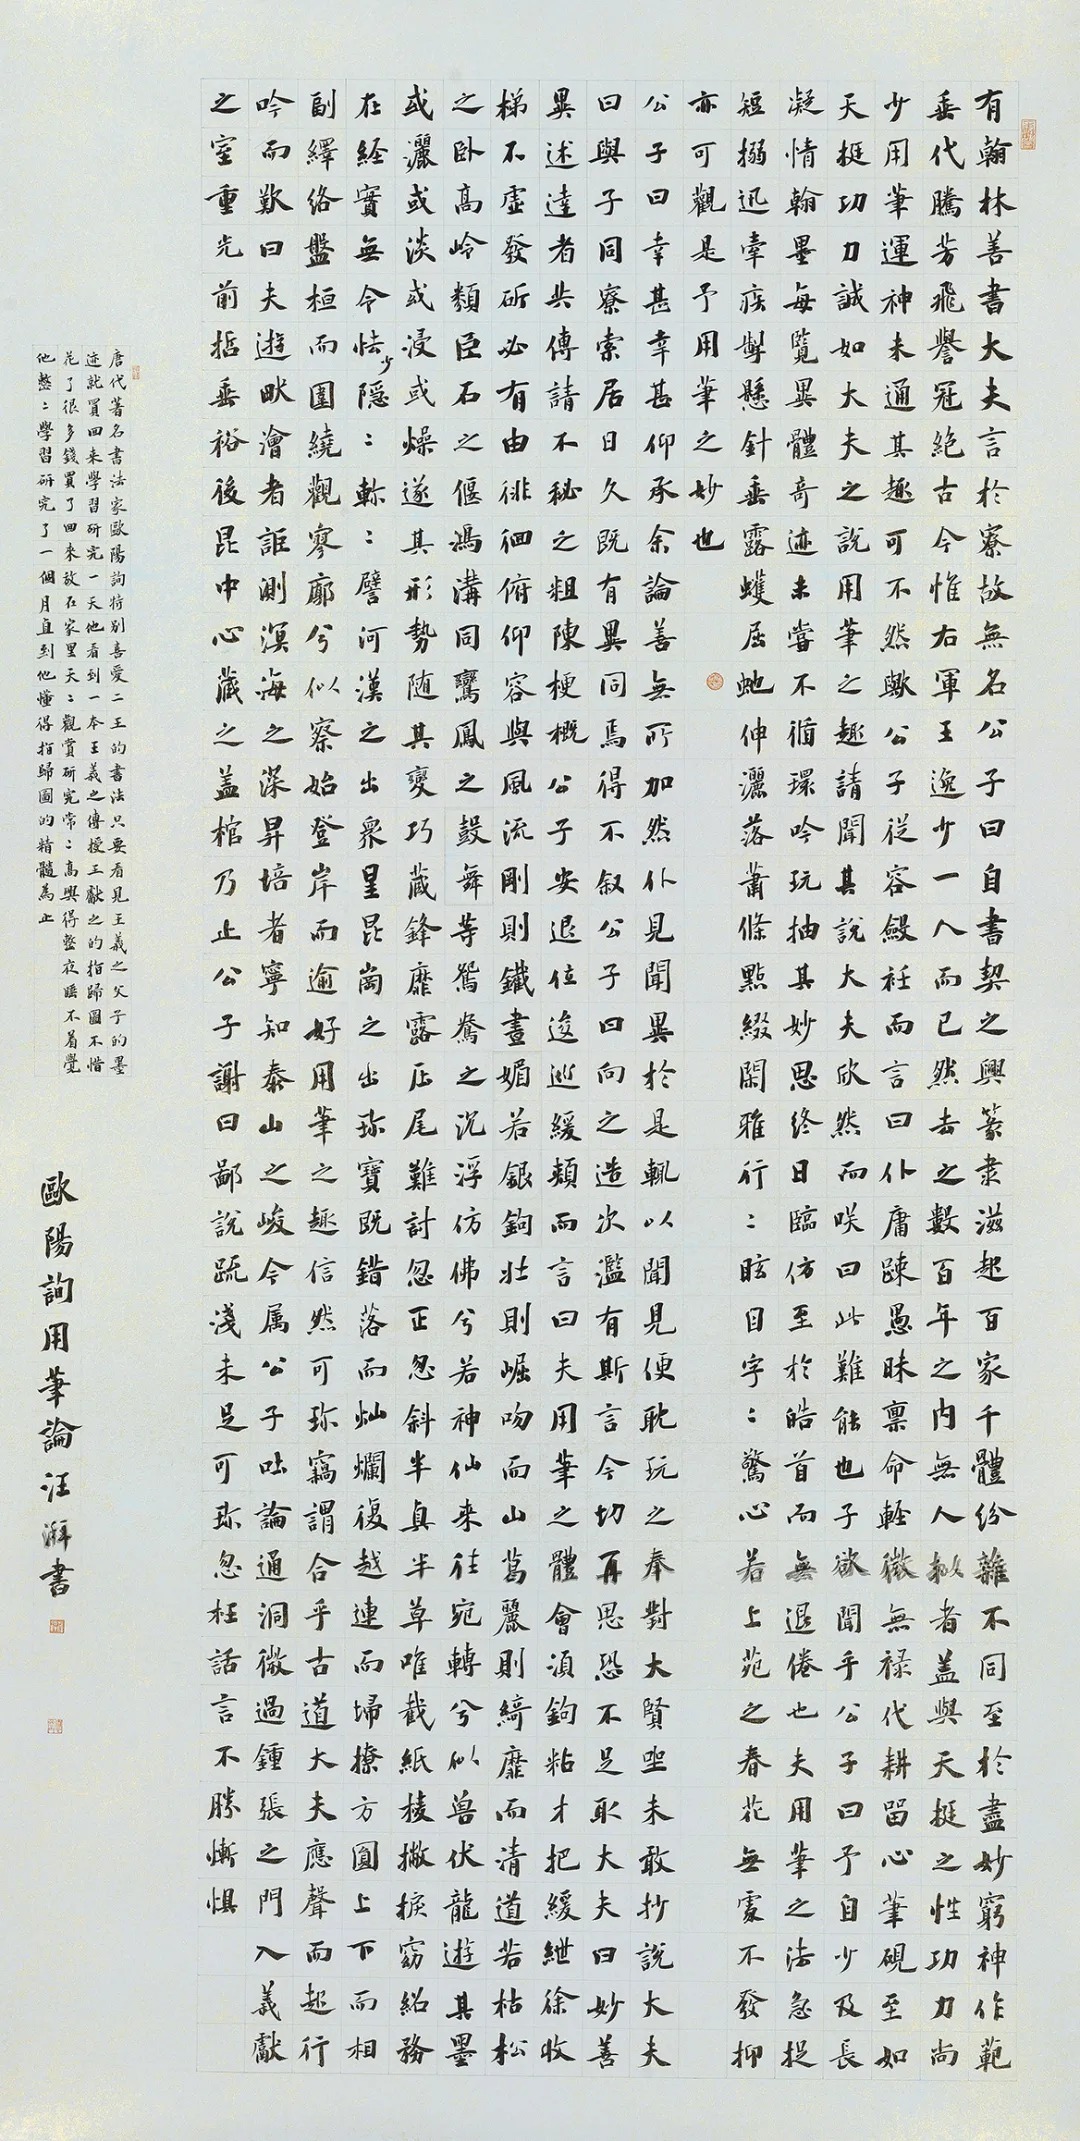 有翰林善書大夫言於寮故無名公子曰自書契之興篆隶滋起百家千體紛雜不同至於盡妙窮神作範
垂代騰芳飛譽冠絶古今惟右軍王逸少一人而已然去之數百年之内無人擬者盖與天挺之性功力尚
少用筆運神未通其趣可不然歟公子從容斂衽而言曰仆庸踈愚昧禀命輕微無禄代耕留心筆硯至如
天挺功力誠如大夫之說用筆之趣請聞其說大夫欣然而咲曰此難能也子欲聞乎公子曰予自少及長
凝情翰墨每覽異體奇迹未嘗不循環吟玩抽其妙思終日臨仿至於皓首而無退倦也夫用筆之法急捉
短搦迅牽疾掣懸針垂露蠖屈虵伸灑落蕭條點綴閑雅行〻眩目字〻驚心若上苑之春花無處不發抑
亦可觀是予用筆之妙也
公子曰幸甚幸甚仰承余論善無所加然仆見聞異於是輒以聞見便耽玩之奉對大賢坐未敢抄說大夫
曰與子同寮索居日久既有異同焉得不叙公子曰向之造次濫有斯言今切再思恐不足取大夫曰妙善
異述達者共傳請不秘之粗陳梗概公子安退位逡巡緩頰而言曰夫用筆之體會須鉤粘才把緩紲徐收
梯不虚發斫必有由徘徊俯仰容與風流剛則鐵畫媚若銀鉤壮則崛吻而山萬麗則綺靡而清道若枯松
之卧高岭類臣石之偃鴻溝同鸞鳳之鼓舞等鴛鴦之沉浮仿佛兮若神仙来往宛轉兮似兽伏龍遊其墨
或灑或淡或浸或燥遂其形勢随其變巧藏鋒靡露压尾難討忽正忽斜半真半草唯截紙棱撇捩窈紹務
在经實無令怯少隱〻軫〻譬河漢之出衆星昆崗之出珎寶既錯落而灿爛復越連而埽撩方圓上下而相
副繹络盤桓而圍繞觀寥廓兮似察始登岸而逾好用筆之趣信然可珎竊謂合乎古道大夫應聲而起行
吟而歎曰夫遊畎澮者詎測溟海之深昇培者寧知泰山之峻今属公子吐論通洞微過鍾張之門入義獻
之室重光前哲垂裕後昆中心藏之盖棺乃止公子謝曰鄙說疏淺未足可珎忽枉話言不勝慚惧
唐代著名書法家歐陽詢特别喜愛二王的書法只要看見王義之父子的墨
迹就買回来學習研完一天他看到一本王義之傳授王獻之的指歸圖不惜
花了很多錢買了回来放在家里天〻觀賞研究常〻高興得整夜睡不着覺
他整〻學習研究了一個月直到他懂得指歸圖的精髓為止
歐陽詢用筆論汪澥書